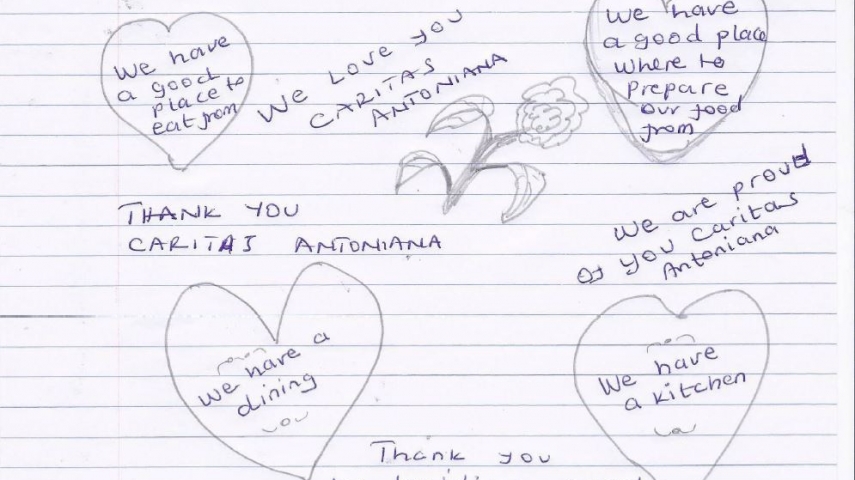 We have
a good
place to
eat from
We LOVE YOU
CARITAS
ANTONIANA
We have
a good place
where to
prepare
our food
from
THANK YOU
CARITAS ANTONIANA
We are proud
Of you Caritas
Antoniana
We have a
dining
We have
a kitchen
Thank you